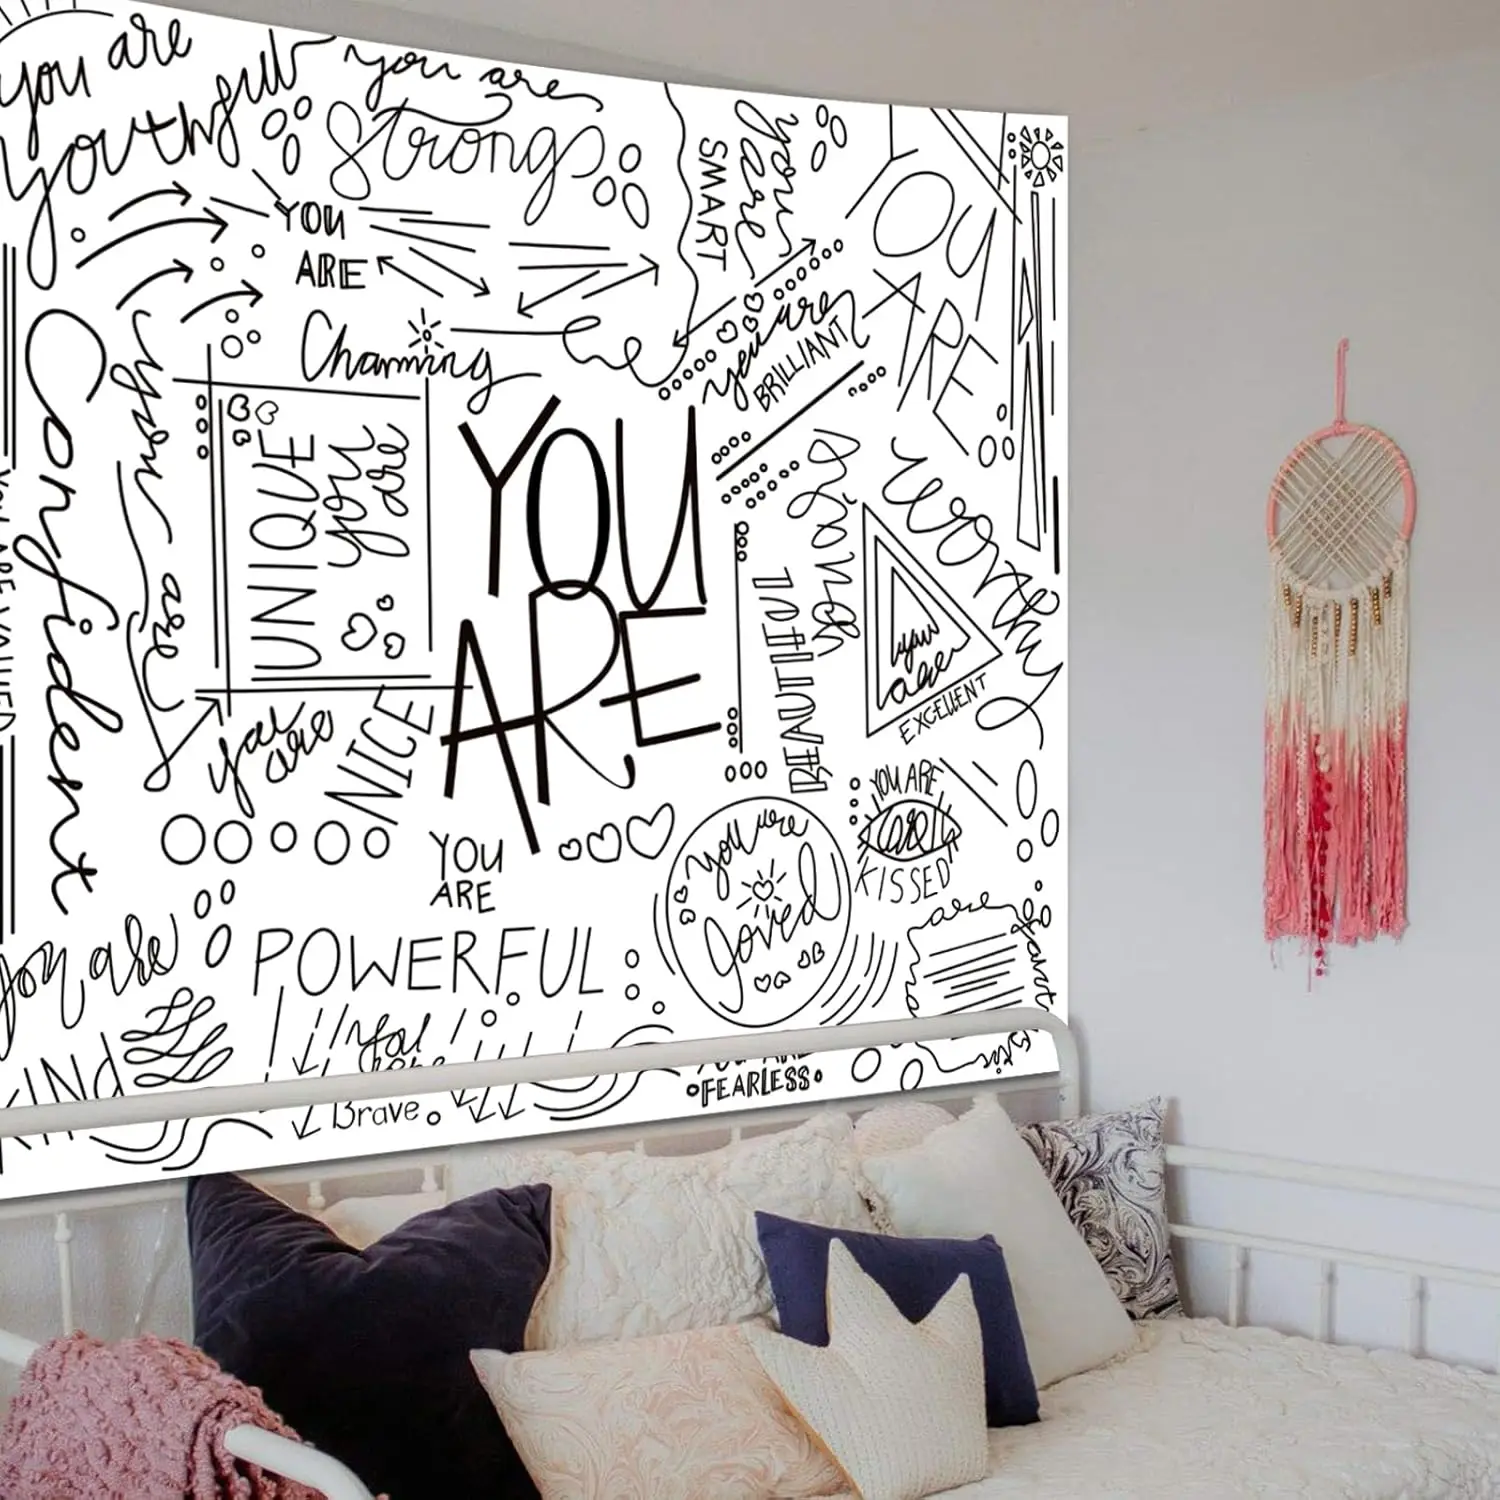 you are
youthful
you are
Strong
YOU
ARE
Charming
you are
SMART
YOU
ARE
worthy
you are
BRILLIANT
Confident
you are
UNIQUE
you
are
YOU
ARE
you are
NICE
YOU ARE VALUED
BEAUTIFUL
you are
EXCELLENT
YOU
ARE
POWERFUL
you are
loved
YOU ARE
KISSED
you are
KIND
You
are
Brave
YOU ARE
FEARLESS
are